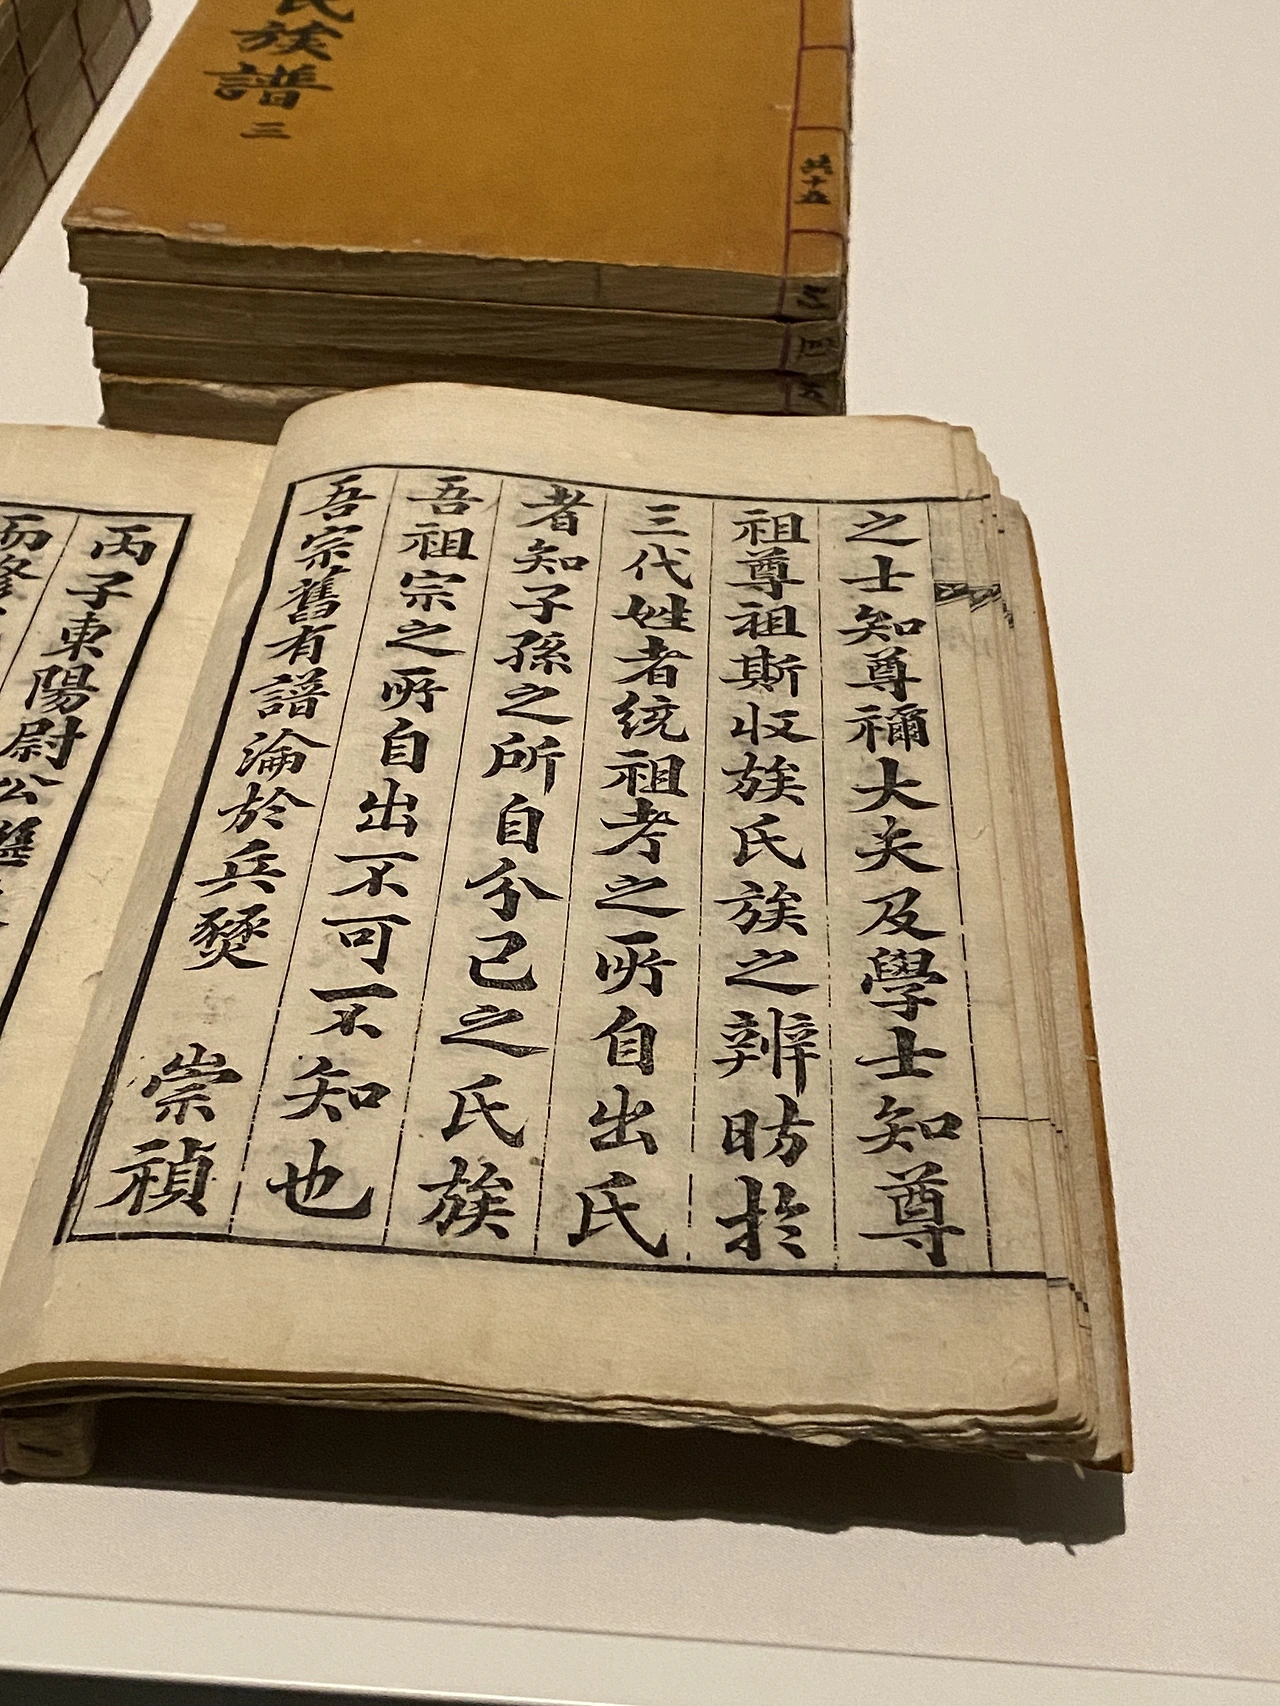 氏族譜
三
共十五
三
四
五
之士知尊禰大夫及學士知尊
祖尊祖斯收族氏族之辨昉於
三代姓者統祖考之所自出氏
者知子孫之所自分己之氏族
吾祖宗之所自出不可不知也
吾宗舊有譜淪於兵燹 崇禎
丙子東陽尉公
而修